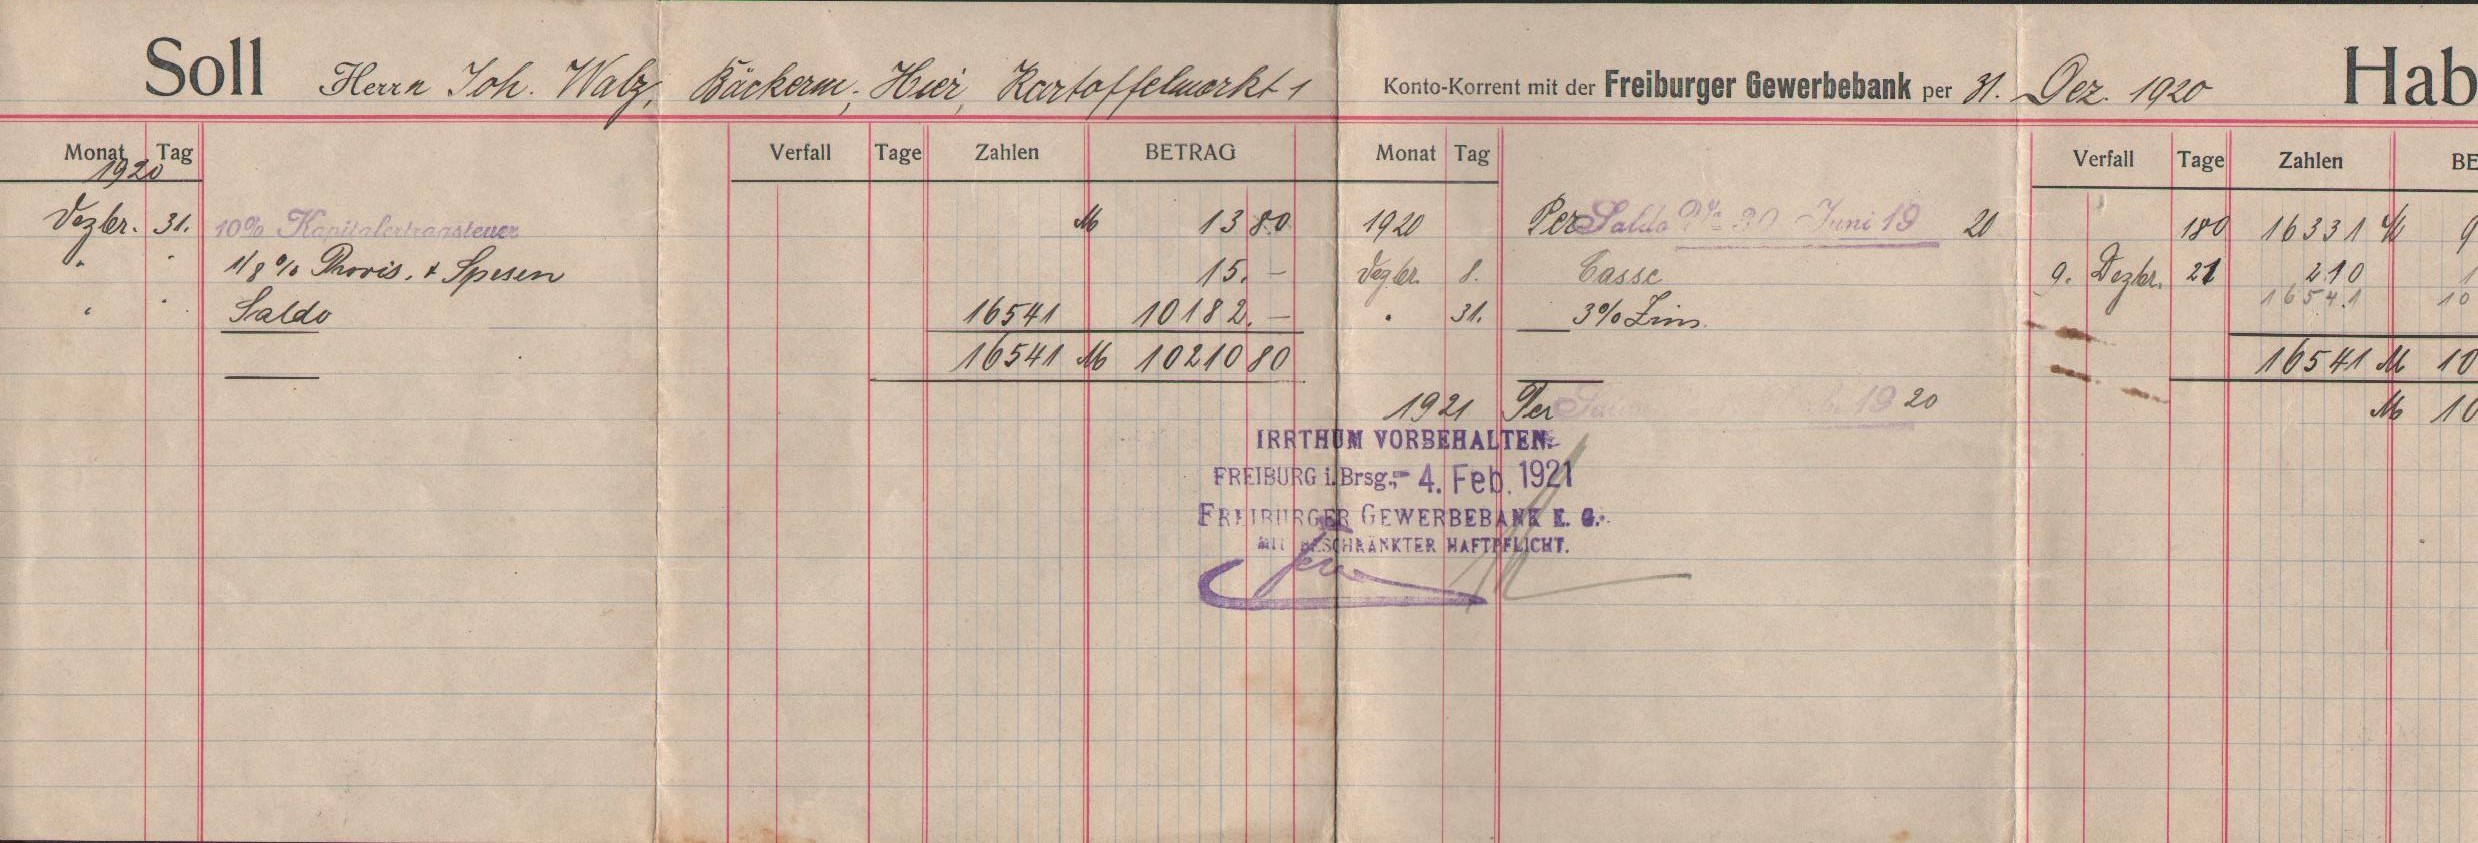 Soll Herrn Joh. Walz, Bäckerm, Hier, Kartoffelmarkt 1 Konto-Korrent mit der Freiburger Gewerbebank per 31. Dez. 1920 Hab
Monat Tag Verfall Tage Zahlen BETRAG Monat Tag Verfall Tage Zahlen BE
1920
Dezbr. 31. 10% Kapitalertragsteuer M 13 80 1920 Per Saldo 30 Juni 19 20 180 16331 M 9
" " 1/8% Provis. & Spesen 15. — Dezbr. 8. Casse 9. Dezbr. 21 210 1
16541 10
" " Saldo 16541 10182. — " 31. 3% Zins.
16541 M 10210 80 16541 M 10
1921 Per 19 20 M 10
IRRTHUM VORBEHALTEN.
FREIBURG i. Brsg., - 4. Feb. 1921
FREIBURGER GEWERBEBANK E. G.
MIT BESCHRÄNKTER HAFTPFLICHT.